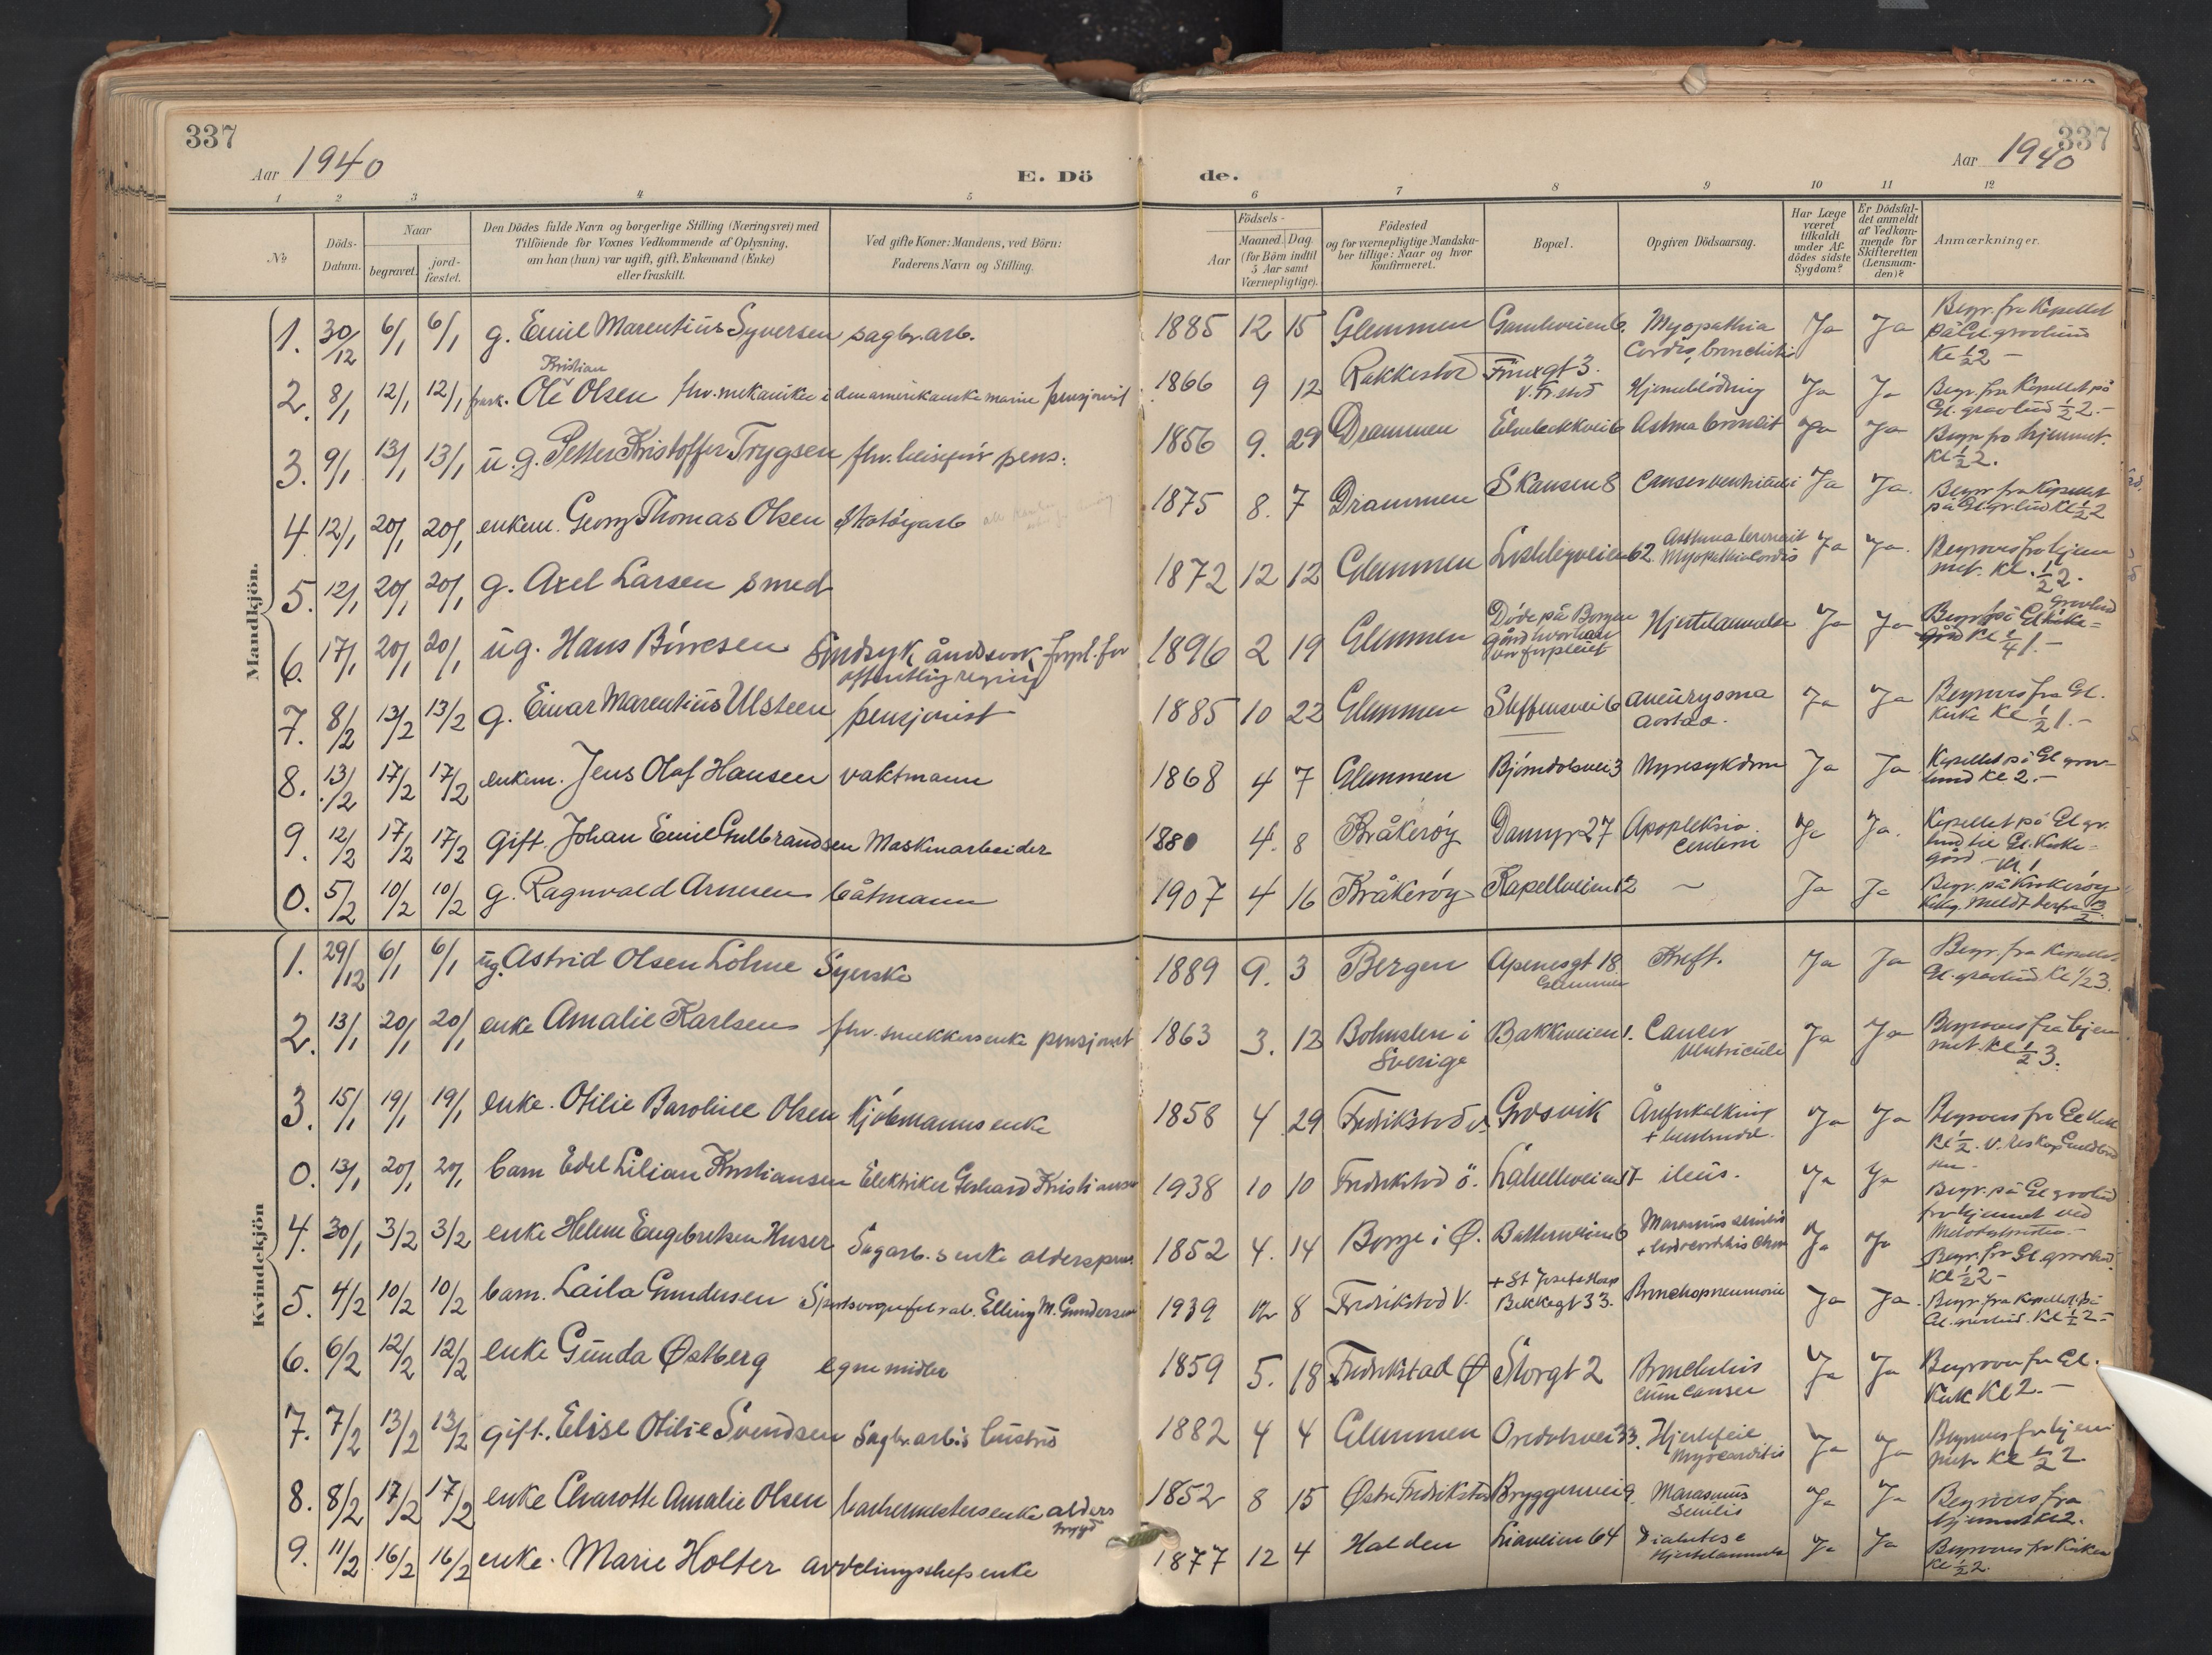 337
Aar 1940
E. Dö
de.
Aar 1940
337
1 2 3 4 5 6 7 8 9 10 11 12
No
Döds-
Datum.
Naar
begravet.
jord-
fæstet.
Den Dödes fulde Navn og borgerlige Stilling (Næringsvei) med
Tilföiende for Voxnes Vedkommende af Oplysning,
om han (hun) var ugift, gift, Enkemand (Enke)
eller fraskilt.
Ved gifte Koner: Mandens, ved Börn:
Faderens Navn og Stilling.
Födsels-
Aar
Maaned. Dag.
(for Börn indtil
5 Aar samt
Værnepligtige).
Födested
og for værnepligtige Mandska-
ber tillige: Naar og hvor
konfirmeret.
Bopæl.
Opgiven Dödsaarsag.
Har Læge
været
tilkaldt
under Af-
dödes sidste
Sygdom?
Er Dödsfal-
det anmeldt
af Vedkom-
mende for
Skifteretten
(Lensman-
den)?
Anmærkninger.
Mandkjön.
1. 30/12 6/1 6/1 g. Emil Marentius Syversen sagbr.arb. 1885 12 15 Glemmen Ja Ja
Myopathia
Cordis, bronchitis
Begr. fra Kapellet
på Gl. gravlund
Kl ½2 –
Kristian
2. 8/1 12/1 12/1 frask. Ole Olsen fhv. mekaniker i den amerikanske marine pensjonist 1866 9 12 Rakkestad Hjerneblödning Ja Ja
V. Fr.stad
Begr. fra Kapellet på
Gl. gravlund ½2.–
3. 9/1 13/1 13/1 u.g. Petter Kristoffer Trygsen fhv. pens. 1856 9. 29 Drammen Astma bronkit Ja Ja
Begr. fra hjemmet.
Kl ½2.
4 12/1 20/1 20/1 enkem. Georg Thomas Olsen skotöyarb 1875 8. 7 Drammen Skansen 8 Canser ventriculi Ja Ja.
Begr. fra Kapellet
på Gl. gr.lund Kl ½2
5. 12/1 20/1 20/1 g. Axel Larsen smed 1872 12 12 Glemmen Ja Ja.
Asthma bronkit
Myopathia Cordis
Begraves fra hjem
met. Kl. ½2.
6. 17/1 20/1 20/1 ug. Hans Sindsyk åndssvak forpl. for
offentlig regning
1896 2 19 Glemmen Hjertelammelse Ja Ja
Døde på Borgen
Gård hvor han
var forpleiet
7. 8/2 13/2 13/2 g. Einar Marentius Ulsteen pensjonist 1885 10 22 Glemmen Steffensvei 6 Ja Ja
aneurysma
aortae.
Begraves fra Gl.
Kirke Kl ½1.–
8. 13/2 17/2 17/2 enkem. Jens Olaf Hansen vaktmann 1868 4 7 Glemmen Nyresykdom Ja Ja
Kapellet på Gl grav-
lund Kl 2.–
9. 12/2 17/2 17/2 gift. Johan Emil Gulbrandsen Maskinarbeider 1880 4. 8 Kråkerøy Damyr 27 Ja Ja.
Apopleksia
Cerebri
Kapellet på Gl gr.
lund til Gl. Kirke-
gård – Kl 1
0. 5/2 10/2 10/2 g. Ragnvald Arnesen båtmann 1907 4 16 Kråkerøy Kapellveien 12 ~ Ja Ja
Begr. på Kråkerøy
Kvindekjön
1. 29/12 6/1 6/1 ug. Astrid Olsen Lohne Syerske 1889 9. 3 Bergen Apenesgt 18. Kreft. Ja Ja
Glemmen
Begr. fra Kapellet
Gl. gravlund Kl ½3.
2. 13/1 20/1 20/1 enke Amalie Karlsen fhv. snekkers enke pensjonist 1863 3. 12 Bakkeveien 1. Ja Ja
Bohuslen i
Sverige
Cancer
Ventriculi
Begraves fra hjem
met. Kl ½3.
3. 15/1 19/1 19/1 enke. Otilie Baroline Olsen Kjöbmanns enke 1858 4 29 Fredrikstad v. Gresvik Ja Ja
Årefork­alkning
0. 13/1 20/1 20/1 barn Edel Lilian Kristiansen Elektriker Gerhard Kristiansen 1938 10 10 Fredrikstad ö. ileus. Ja Ja
Begr. på Gl gravlund
fra hjemmet ved
4. 30/1 3/2 3/2 enke Helene Engebretsen Huser Sagarb.s enke alderspens. 1852 4. 14 Borge i Ø. Ja Ja
Marasmus senilis
Begr. fra Gl gravlund.
Kl ½2–
5. 4/2 10/2 10/2 barn. Laila Gundersen Elling M. Gundersen 1939 12 8 Fredrikstad V. Bronchopneumonie Ja Ja.
+ St Josefs Hosp
Bekkegt 33.
Begr. fra Kapellet på
Gl. gravlund. Kl ½2–
6. 6/2 12/2 12/2 enke Gunda Østberg egne midler 1859 5. 18 Fredrikstad Ø Storgt 2 Ja Ja
Bronchitis
cum canser
Begraves fra Gl.
Kirke Kl 2.–
7. 7/2 13/2 13/2 gift. Elise Otilie Svendsen Sagbr.arb.s hustru 1882 4 4 Glemmen Ja Ja
Hjertefeil
Myocarditis
Begraves fra hjem
met Kl ½2
8. 8/2 17/2 17/2 enke Charotte Amalie Olsen enke alders
trygd
1852 8 15 Østre Fredrikstad Bryggerivei 9. Ja Ja
Marasmus
Senilis
Begraves fra
hjemmet Kl 2.
9. 11/2 16/2 16/2 enke. Marie Holter avdelingssjefs enke 1877 12 4 Halden Liaveien 64 Ja Ja
Diabetes
Hjertelammelse
Begraves fra Kirken
Kl ½2.